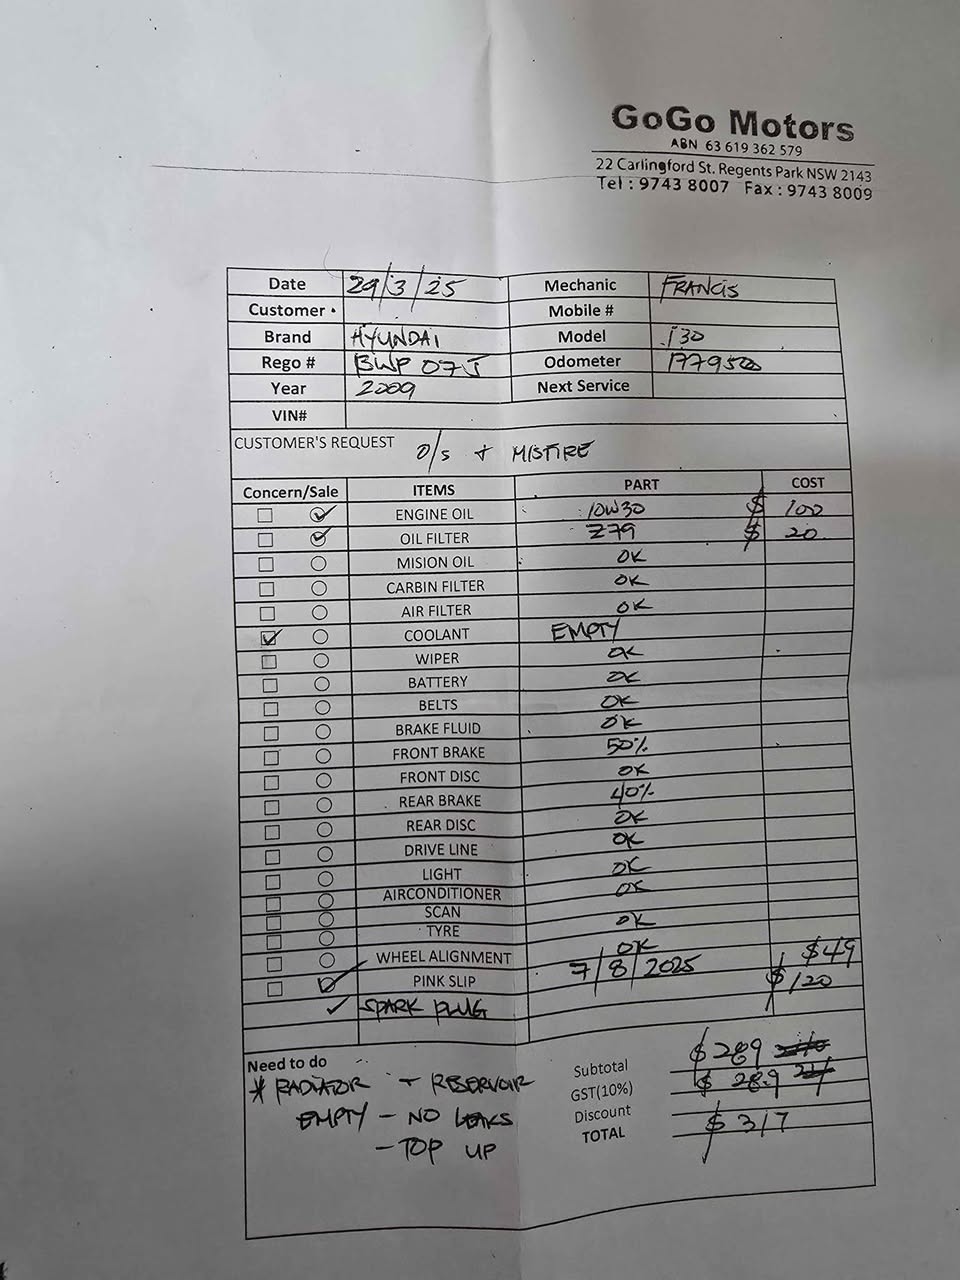 GoGo Motors
ABN 63 619 362 579
22 Carlingford St. Regents Park NSW 2143
Tel : 9743 8007 Fax : 9743 8009
Date 29/3/25 Mechanic FRANCIS
Customer Mobile #
Brand HYUNDAI Model i30
Rego # BWP 07J Odometer 177950
Year 2009 Next Service
VIN#
CUSTOMER'S REQUEST O/S + MISFIRE
Concern/Sale ITEMS PART COST
ENGINE OIL 10W30 $ 100
OIL FILTER Z79 $ 20
MISION OIL OK
CARBIN FILTER OK
AIR FILTER OK
COOLANT EMPTY
WIPER OK
BATTERY OK
BELTS OK
BRAKE FLUID OK
FRONT BRAKE 50%
FRONT DISC OK
REAR BRAKE 40%
REAR DISC OK
DRIVE LINE OK
LIGHT OK
AIRCONDITIONER OK
SCAN
TYRE OK
WHEEL ALIGNMENT OK
PINK SLIP 7/8/2025 $49
SPARK PLUG $120
Need to do
* RADIATOR + RESERVOIR
EMPTY - NO LEAKS
- TOP UP
Subtotal $289
GST(10%) $ 28.9
Discount
TOTAL $ 317